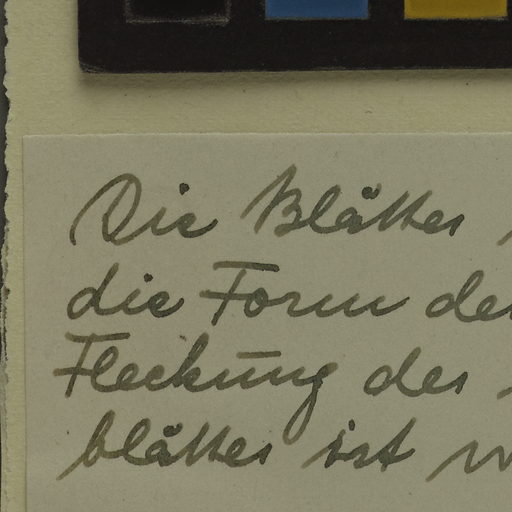 Die Blätter
die Form der
Fleckung der
blätter ist